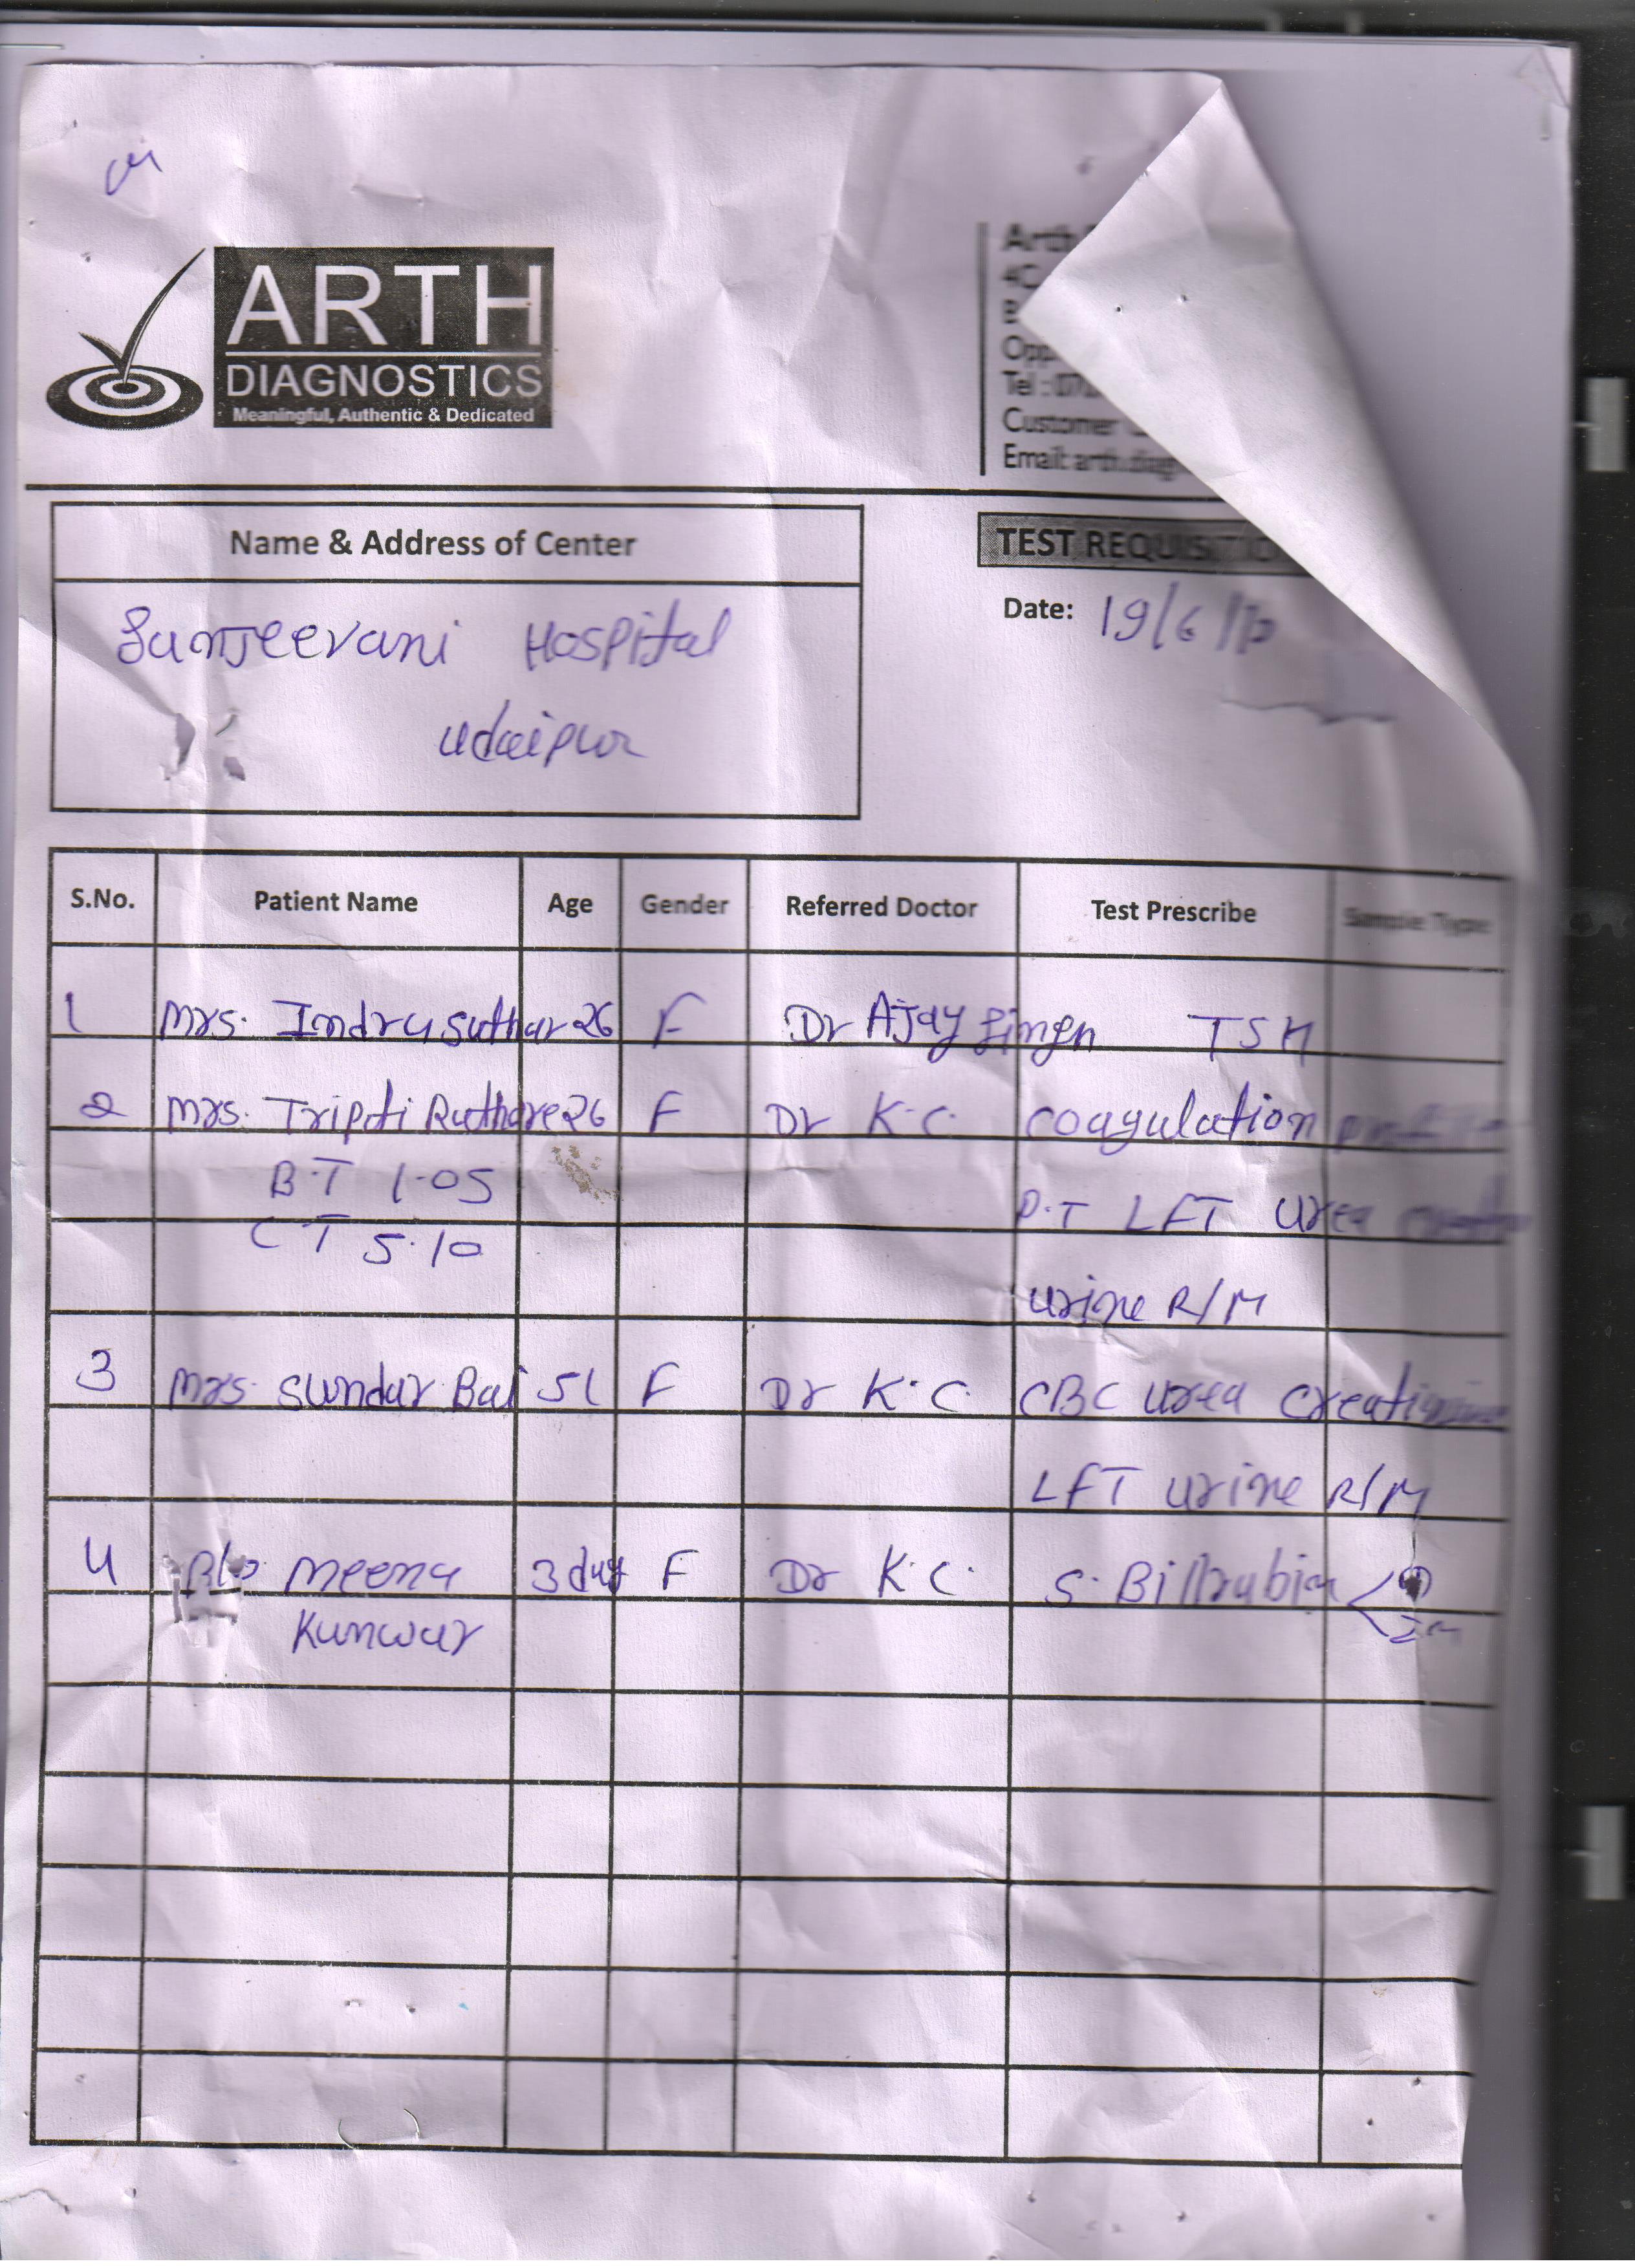 ARTH
DIAGNOSTICS
Meaningful, Authentic & Dedicated
Arth
Opp
Tel : 07
Customer
Email: arth.diag
Name & Address of Center
Sanjeevani Hospital
Udaipur
TEST REQUISITIO
Date: 19/6/
S.No. Patient Name Age Gender Referred Doctor Test Prescribe Sample Type
1 Mrs. Indra Suthar 26 F Dr Ajay Singh TSH
2 Mrs. Tripti Rathore 26 F Dr K.C. coagulation profile
B.T 1.05 P.T LFT Urea
CT 5.10
Urine R/M
3 Mrs. Sundar Bai 51 F Dr K.C. CBC Urea Creatinine
LFT Urine R/M
4 B/o Meena 3 day F Dr K.C. S. Billrubin
Kunwar